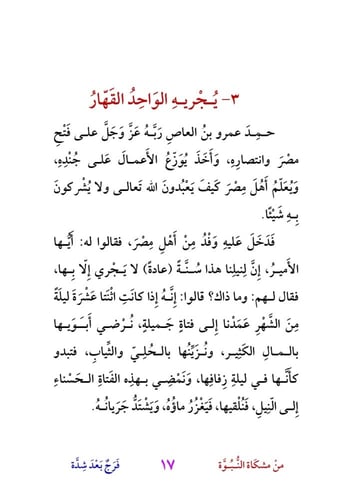 ٣- يُـجْريـهِ الوَاحِدُ القَهّارُ
حـمِـدَ عمرو بنُ العاصِ رَبَّـهُ عَزَّ وَجَلَّ علـى فَتْحِ
مصْرَ وانتصارِهِ، وَأَخَذَ يُوَزِّعُ الأَعمـالَ عَلـى جُنْدِهِ،
وَيُعَلِّمُ أَهْلَ مِصْرَ كَيفَ يَعْبُدُونَ الله تَعالـى ولا يُشْركونَ
بِـهِ شَيْئًا.
فَدَخَلَ عَليهِ وَفْدٌ مِنْ أَهْلِ مِصْرَ، فقالوا له: أَيُّـها
الأَميرُ، إِنَّ لِنِيلِنا هذا سُـنَّـةً (عادةً) لا يَـجْري إِلّا بِـها،
فقال لـهم: وما ذاك؟ قالوا: إِنَّـهُ إذا كانَتِ اثْنَتا عَشْرَةَ ليلَةً
مِنَ الشَّهْرِ عَمَدْنا إِلـى فتاةٍ جَـميلةٍ، نُـرْضي أَبَـوَيـها
بالـمـالِ الكَثِيـرِ، ونُـزَيِّنُـها بالـحُلِـيِّ والثِّيابِ، فتبدو
كأَنَّـها فـي ليلةِ زِفافِها، وَنَمْضِي بـهذِهِ الفَتاةِ الـحَسْناءِ
إِلـى النِّيلِ، فَنُلْقيها، فَيَغْزُرُ ماؤُهُ، وَيَشْتَدُّ جَرَيانُـهُ.
منْ مشكَاة النُّـبُـوَّة ١٧ فَرَجٌ بَعْدَ شِدَّة